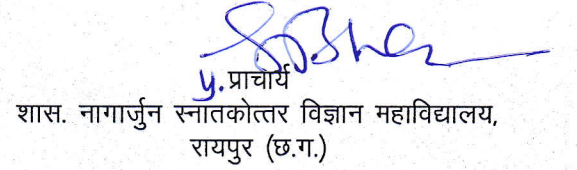 प्राचार्य
शास. नागार्जुन स्नातकोत्तर विज्ञान महाविद्यालय,
रायपुर (छ.ग.)